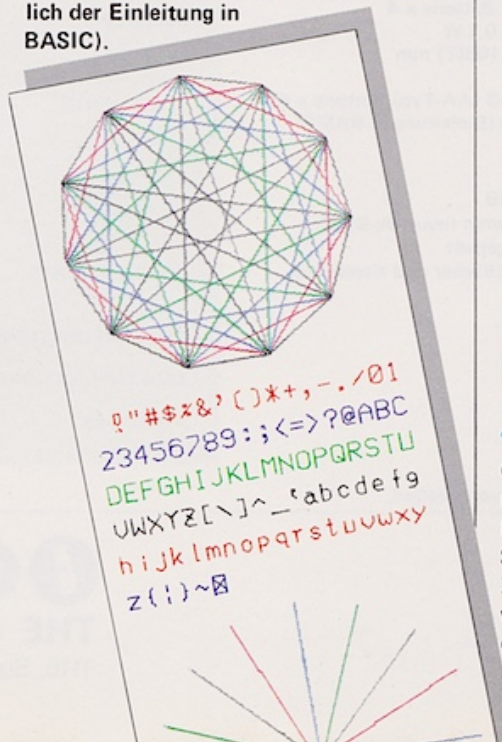 lich der Einleitung in
BASIC).
!"#$%&'()*+,-./01
23456789:;<=>?@ABC
DEFGHIJKLMNOPQRSTU
VWXYZ[\]^_‘abcdefg
hijklmnopqrstuvwxy
z{¦}~⌧